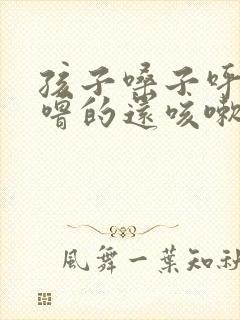 孩子嗓子呼
噜的還咳嗽
風舞一葉知秋